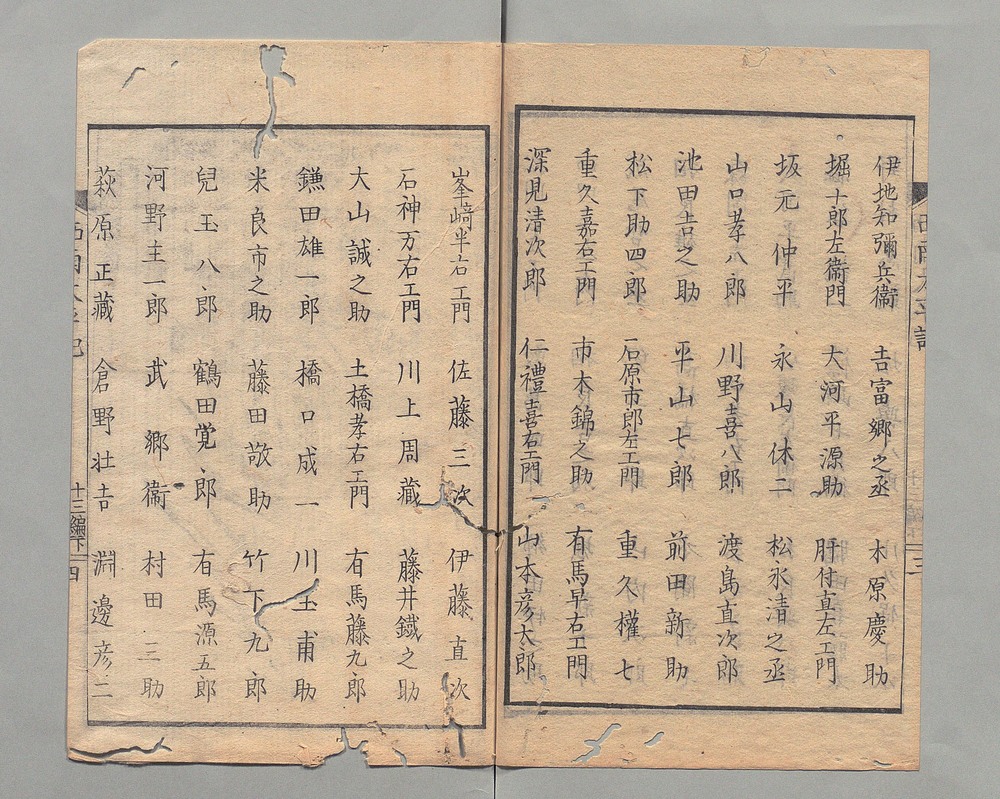 伊地知彌兵衞 吉富郷之丞 木原慶助
堀十郎左衞門 大河平源助 肝付直左エ門
坂元仲平 永山休二 松永清之丞
山口孝八郎 川野喜八郎 渡島直次郎
池田吉之助 平山七郎 前田新助
松下助四郎 石原市郎左エ門 重久權七
重久嘉右エ門 市木錦之助 有馬早右エ門
深見清次郎 仁禮喜右エ門 山本彦太郎
峯﨑半右エ門 佐藤三次 伊藤直次
石神万右エ門 川上周藏 藤井鐵之助
大山誠之助 土橋孝右エ門 有馬藤九郎
鎌田雄一郎 橋口成一 川玉甫助
米良市之助 藤田敬助 竹下九郎
兒玉八郎 鶴田覚郎 有馬源五郎
河野圭一郎 武郷衞 村田三助
萩原正藏 倉野壮吉 淵邊彦二
十三編下 四